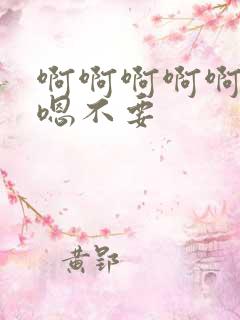 啊啊啊啊啊
嗯不要
黄郢